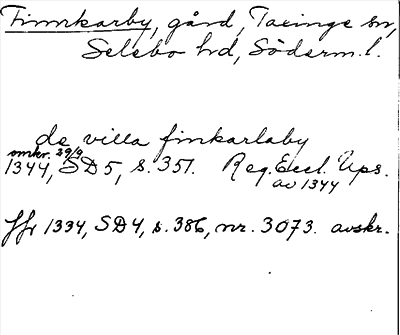 Finnkarby, gård, Taxinge sn,
Selebo hd, Söderm. l.
de villa finkarlaby
omkr. 29/9
1344, SD 5, s. 351. Reg. Eccl. Ups.
av 1344
Jfr 1334, SD 4, s. 386, nr. 3073. avskr.